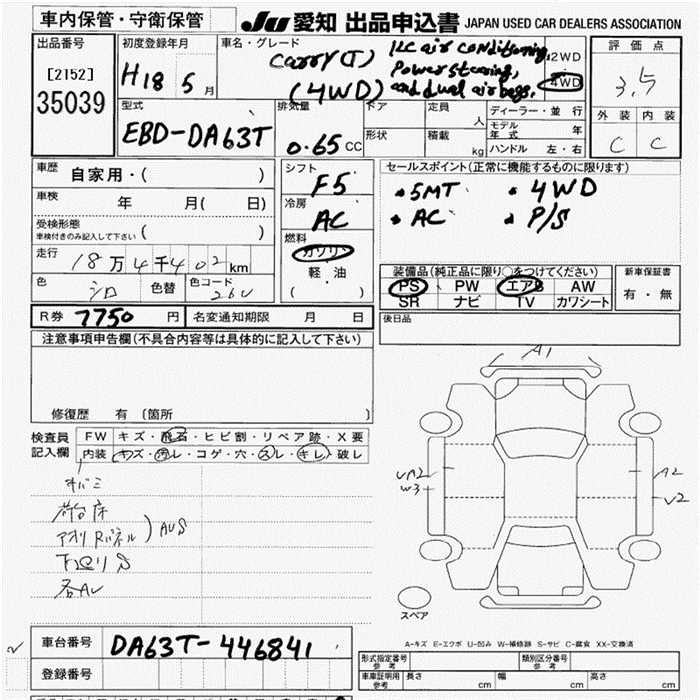 車内保管・守衛保管
JU 愛知 出品申込書 JAPAN USED CAR DEALERS ASSOCIATION
出品番号
[2152]
35039
初度登録年月
H18 5 月
車名・グレード
Carry(T)
(4WD)
air conditioning,
Power stearing,
and dual air bags.
2WD
4WD
評価点
3.5
外装 内装
C C
型式
EBD-DA63T
排気量
0.65 CC
ドア
定員
人
形状
積載
kg
ディーラー・並行
モデル年式 年
ハンドル 左・右
車歴
自家用・( )
車検
年 月( 日)
受検形態
車検付きのみ記入して下さい ( )
走行
18万4千402 km
色
シロ
色替
色コード
26U
シフト
F5
冷房
AC
燃料
ガソリン
軽・油
( )
セールスポイント(正常に機能するものに限ります)
・5MT ・4WD
・AC ・P/S
装備品(純正品に限り○をつけてください)
PS PW エアB AW
SR ナビ TV カワシート
新車保証書
有・無
R券 7750 円
名変通知期限 月 日
後日品
注意事項申告欄(不具合内容等は具体的に記入して下さい)
修復歴 有〔箇所 〕
検査員
記入欄
FW キズ・飛石・ヒビ割・リペア跡・X要
内装 キズ・汚レ・コゲ・穴・スレ・キレ・破レ
荷台床
アオリRパネル
AUS
A1
UA2
W3
A2
U2
スペア
A-キズ E-エクボ U-凹み W-補修跡 S-サビ C-腐食 XX-交換済
車台番号 DA63T-446841
登録番号
形式指定番号
参考
類別区分番号
参考
車庫証明用
参考
長さ cm
幅 cm
高さ cm